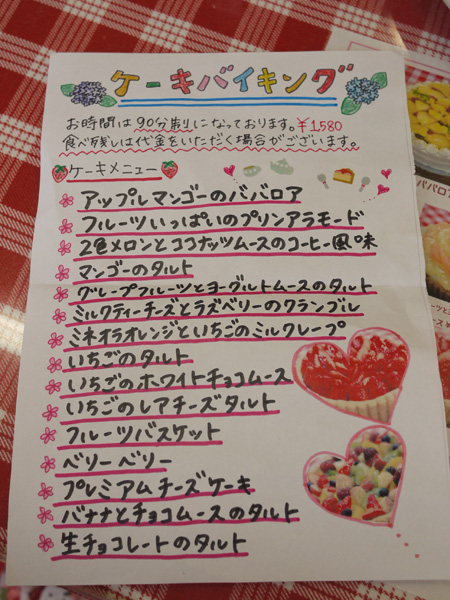 ケーキバイキング
お時間は90分制りになっております。¥1,580
食べ残しは代金をいただく場合がございます。
ケーキメニュー
アップルマンゴーのババロア
フルーツいっぱいのプリンアラモード
2色メロンとココナッツムースのコーヒー風味
マンゴーのタルト
グレープフルーツとヨーグルトムースのタルト
ミルクティーチーズとラズベリーのクランブル
ミネオラオレンジといちごのミルクレープ
いちごのタルト
いちごのホワイトチョコムース
いちごのレアチーズタルト
フルーツバスケット
ベリーベリー
プレミアムチーズケーキ
バナナとチョコムースのタルト
生チョコレートのタルト
ババロア